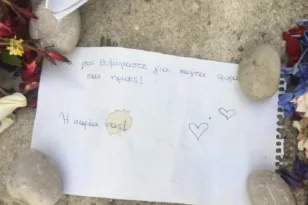 μας θυμόμαστε για πάντα
σαν ήρωες!
Η παρέα σας!